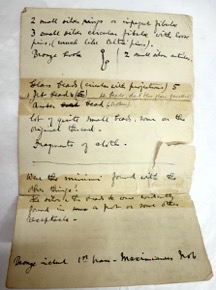 2 small silver rings or
3 small silver circular fibulae with loose
pins (usual like Celtic pins).
Bronze { 2 small silver articles.
Glass bead (circular with projections) 5
1 Jet bead
Amber bead
lot of quite small beads, some on the
original thread.
Fragments of cloth.
Was the minimi found with the
other things?
The silver & the beads to one evidently
found in some a pot or some other
receptacle.
Bronze 1st brass - Maximianus